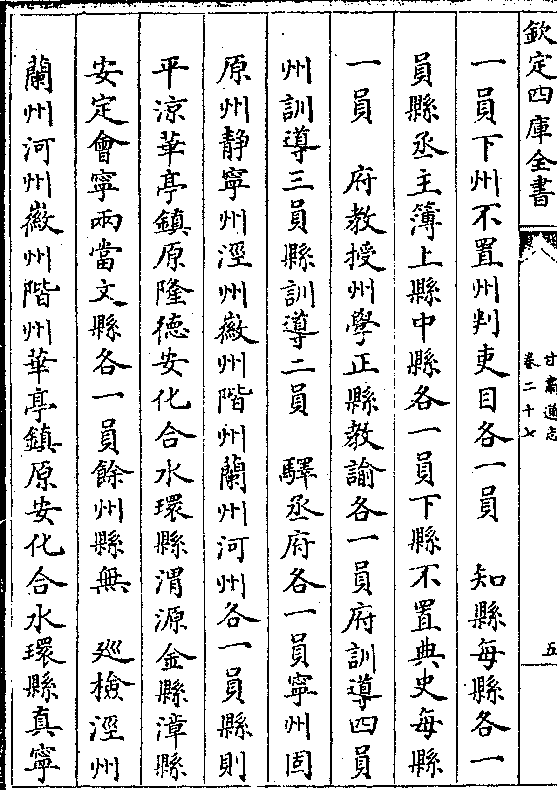 欽定四庫全書
甘肅通志
卷二十七
五
一員下州不置州判吏目各一員　知縣每縣各一
員縣丞主簿上縣中縣各一員下縣不置典史每縣
一員　府教授州學正縣教諭各一員府訓導四員
州訓導三員縣訓導二員　驛丞府各一員寧州固
原州静寧州涇州徽州階州蘭州河州各一員縣則
平涼華亭鎮原隆德安化合水環縣渭源金縣漳縣
安定會寧兩當文縣各一員餘州縣無　廵檢涇州
蘭州河州徽州階州華亭鎮原安化合水環縣真寧